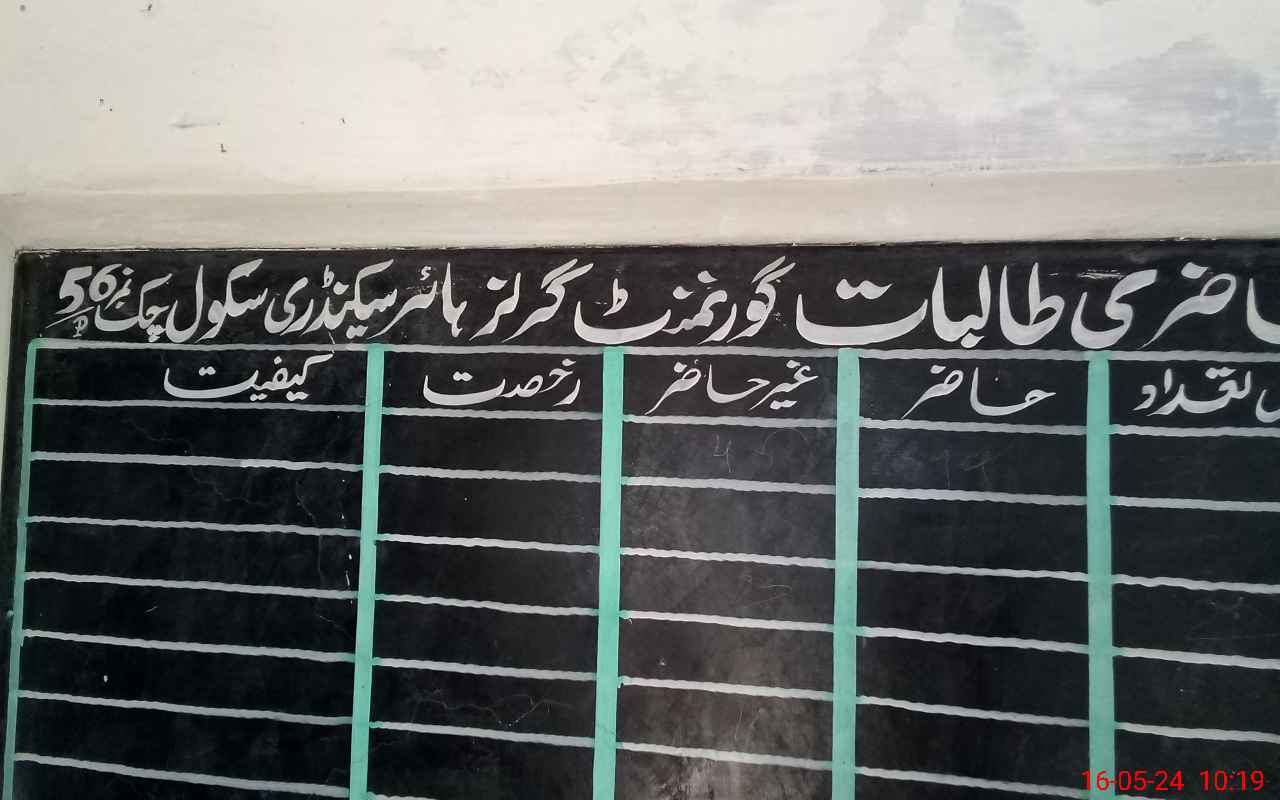 حاضری طالبات گورنمنٹ گرلز ہائر سیکنڈری سکول چک نمبر 56/P
تعداد حاضر غیر حاضر رخصت کیفیت
16-05-24 10:19